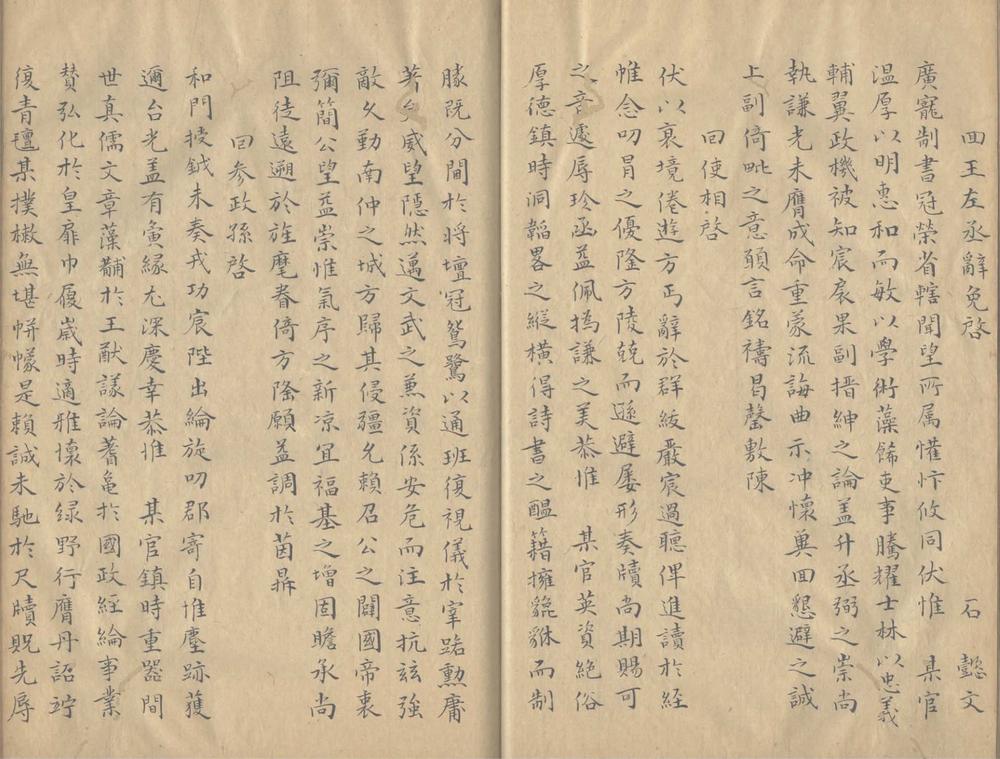 回王左丞辭免啓　石　懿文
廣寵制書冠榮省轄聞望所属懽忭攸同伏惟　某官
温厚以明恵和而敏以學術藻餙吏事騰耀士林以忠義
輔翼政機被知宸扆果副搢紳之論盖升丞弼之崇尚
執謙光未膺成命重蒙流誨曲示冲懷兾回懇避之誠
上副倚毗之意頋言銘禱曷罄敷陳
回使相啓
伏以衰境倦遊方丐辭於群紱嚴宸過聽俾進讀於經
帷念叨冒之優隆方陵兢而遜避屡形奏牘尚期賜可
之音遽辱珍函益佩撝謙之美恭惟　某官英資絶俗
厚德鎮時洞韜畧之縱横得詩書之醖籍擁貔貅而制
勝既分閫於将壇冠鴛鷺以通班復視儀於宰路勲庸
茅　威望隠然邁文武之兼資係安危而注意抗兹強
敵乆動南仲之城方歸其侵疆允頼召公之闢國帝衷
彌簡公望益崇惟氣序之新凉宜福基之增固瞻承尚
阻徒遠遡於旌麾眷倚方隆願益調於茵鼎
回参政孫啓
和門授鉞未奏戎功宸陛出綸旋叨郡寄自惟塵跡獲
邇台光盖有夤縁尤深慶幸恭惟　某官鎮時重器間
世真儒文章藻黼於王猷議論蓍亀扵國政經綸事業
賛弘化扵皇扉巾屨歳時適雅懐於緑野行膺丹詔竚
復青氊某撲樕無堪帡幪是頼誠未馳扵尺牘貺先辱